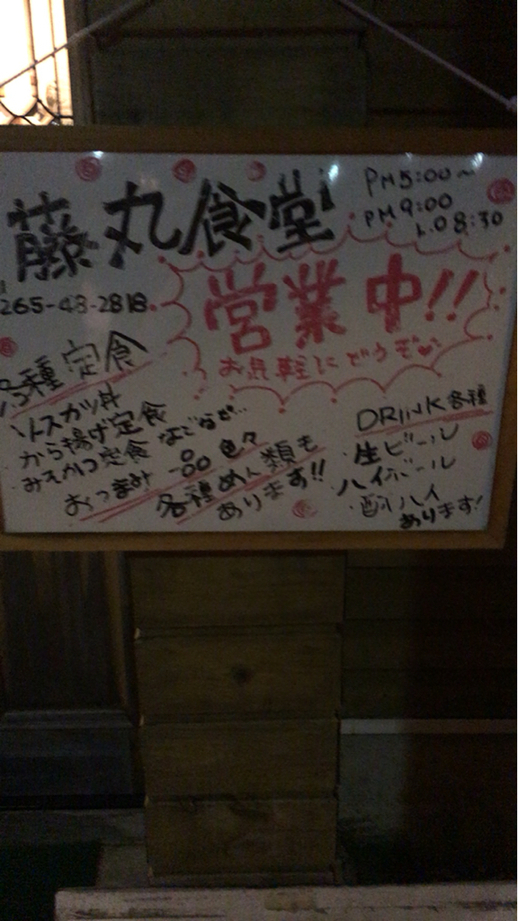 藤丸食堂
PM5:00〜
PM9:00
L.O 8:30
265-48-2818
営業中!!
お気軽にどうぞ♡
各種定食
・ソースカツ丼
・から揚げ定食
・みそかつ定食 などなど…
おつまみ 一品 色々
各種めん類も
あります!!
DRINK各種
・生ビール
・ハイボール
・酎ハイ
あります!